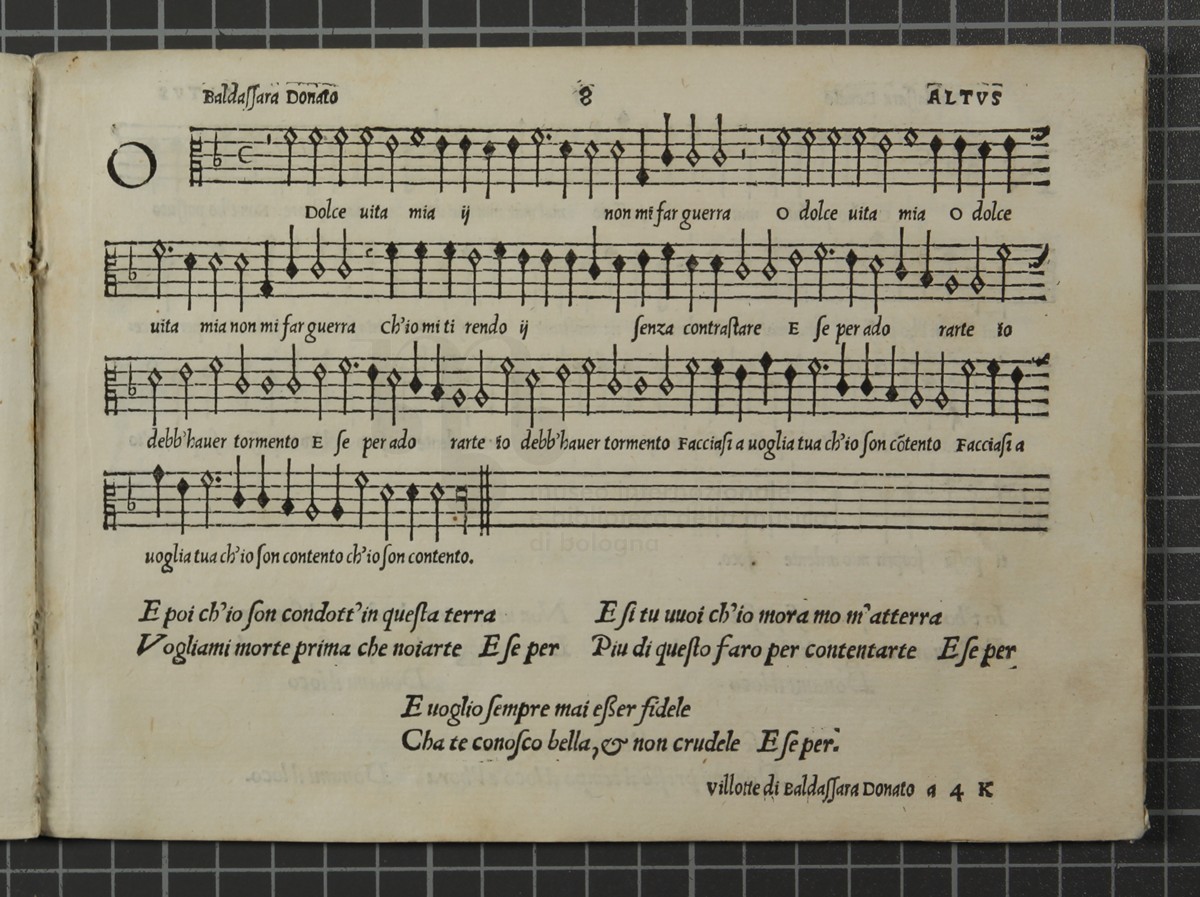 Baldaſſara Donato 8 ALTVS
O Dolce uita mia ij non mi far guerra O dolce uita mia O dolce
uita mia non mi far guerra Ch'io mi ti rendo ij ſenza contraſtare E ſe per ado rarte io
debb'hauer tormento E ſe per ado rarte io debb'hauer tormento Facciaſi a uoglia tua ch'io ſon cõtento Facciaſi a
uoglia tua ch'io ſon contento ch'io ſon contento.
E poi ch'io ſon condott'in queſta terra
Vogliami morte prima che noiarte E ſe per
E ſi tu uuoi ch'io mora mo m'atterra
Piu di queſto faro per contentarte E ſe per
E uoglio ſempre mai eſſer fidele
Cha te conoſco bella, & non crudele E ſe per.
Villotte di Baldaſſara Donato a 4 K